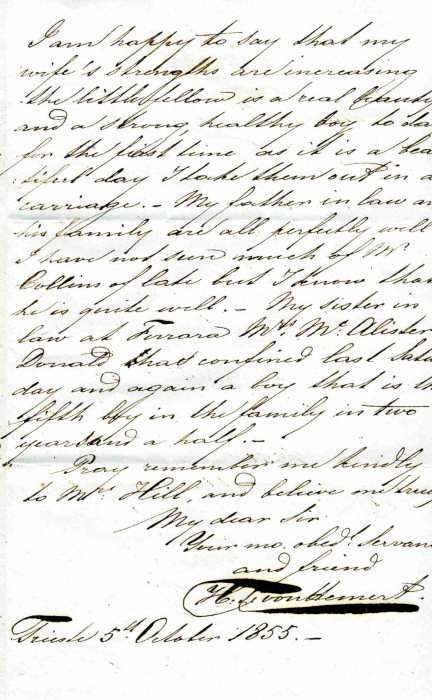 I am happy to say that my
wife's strengths are increasing
the little fellow is a real beauty
and a strong, healthy boy to da
for the first time as it is a bea
tiful day I take them out in a
carriage. – My father in law an
his family are all perfectly well
I have not seen much of Mr
Collins of late but I know that
he is quite well. – My sister in
law at Ferrara Mrs. Mc. Alister
Donald was confined last Satu
day and again a boy that is th
fifth boy in the family in two
years and a half. –
Pray remember me kindly
to Mrs Hill, and believe me truly
My dear Sir
Your mo. obedt. servan
and friend
H. von Hemert.
Trieste 5th October 1855. –